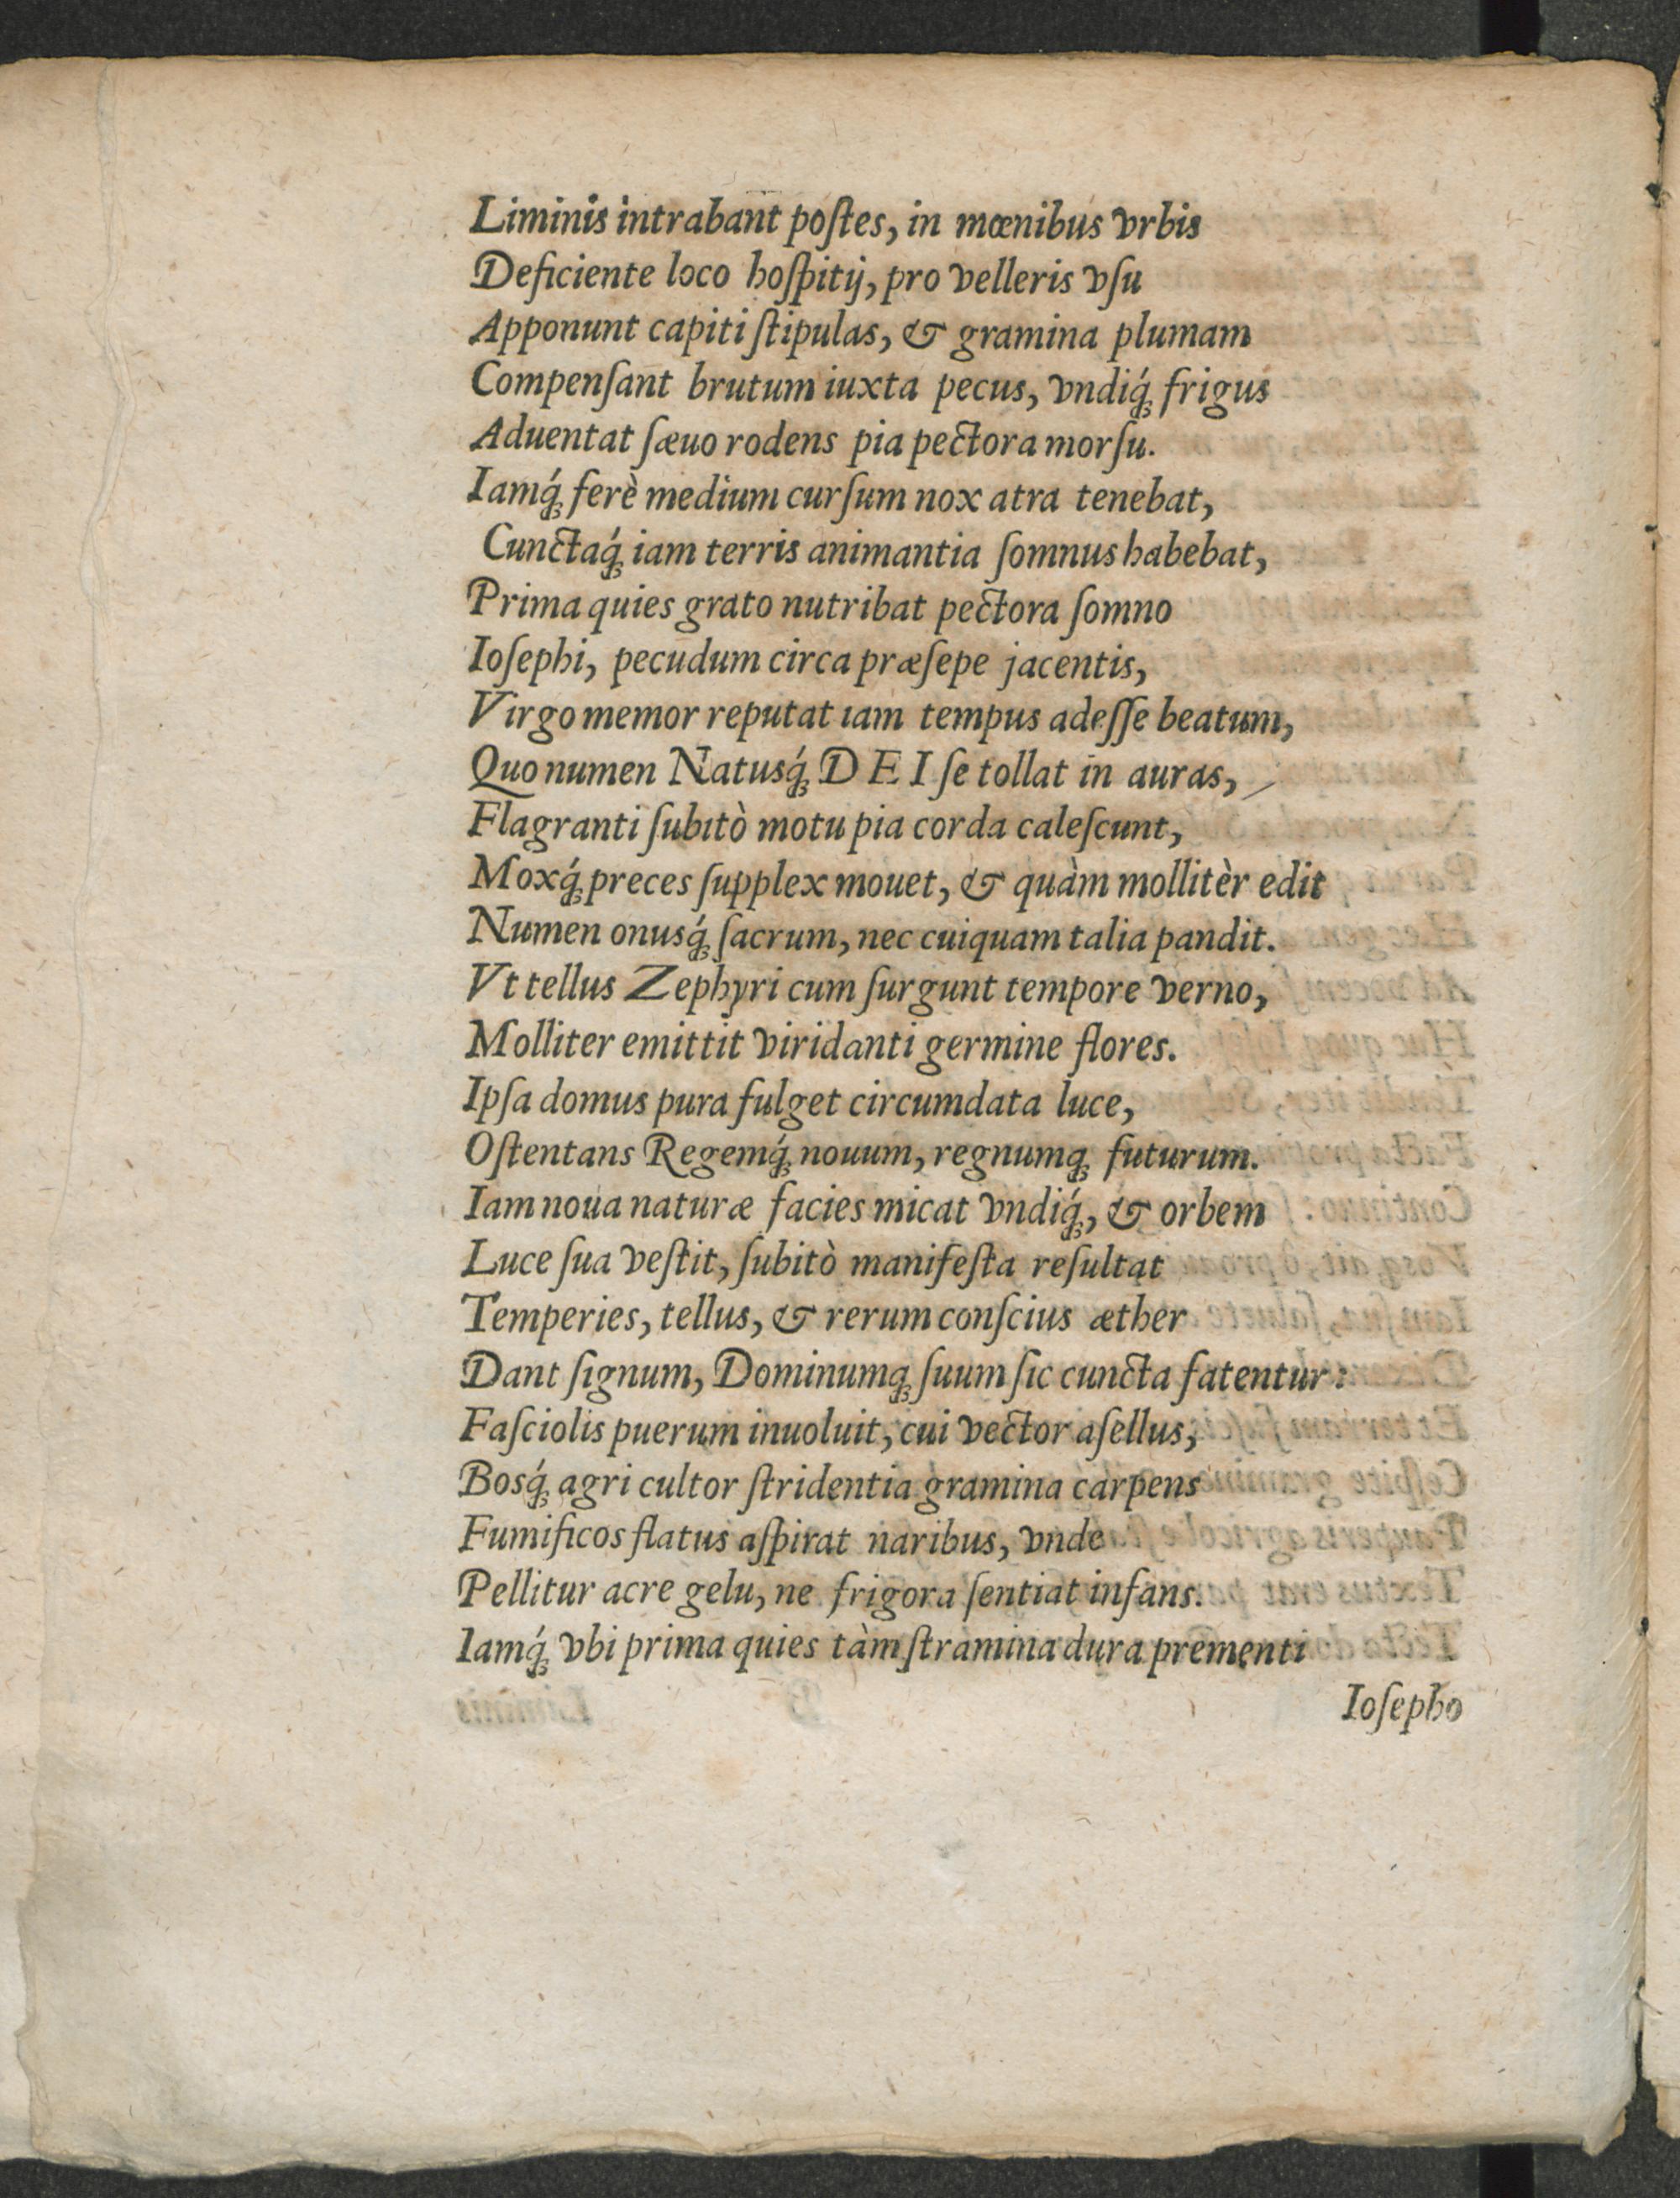 Liminis intrabant poſtes, in mœnibus vrbis
Deficiente loco hoſpitij, pro velleris vſu
Apponunt capiti ſtipulas, & gramina plumam
Compenſant brutum iuxta pecus, vndiq́ꝫ frigus
Aduentat ſæuo rodens pia pectora morſu.
Iamq́ꝫ ferè medium curſum nox atra tenebat,
Cunctaq́ꝫ iam terris animantia ſomnus habebat,
Prima quies grato nutribat pectora ſomno
Ioſephi, pecudum circa præſepe jacentis,
Virgo memor reputat iam tempus adeſſe beatum,
Quo numen Natusq́ꝫ DEI ſe tollat in auras,
Flagranti ſubitò motu pia corda caleſcunt,
Moxq́ꝫ preces ſupplex mouet, & quàm mollitèr edit
Numen onusq́ꝫ ſacrum, nec cuiquam talia pandit.
Vt tellus Zephyri cum ſurgunt tempore verno,
Molliter emittit viridanti germine flores.
Ipſa domus pura fulget circumdata luce,
Oſtentans Regemq́ꝫ nouum, regnumqꝫ futurum.
Iam noua naturæ facies micat vndiq́ꝫ, & orbem
Luce ſua veſtit, ſubitò manifeſta reſultat
Temperies, tellus, & rerum conſcius æther
Dant ſignum, Dominumqꝫ ſuum ſic cuncta fatentur:
Faſciolis puerum inuoluit, cui vector aſellus,
Bosq́ꝫ agri cultor ſtridentia gramina carpens
Fumificos flatus aſpirat naribus, vnde
Pellitur acre gelu, ne frigora ſentiat infans.
Iamq́ꝫ vbi prima quies tàm ſtramina dura prementi
Ioſepho